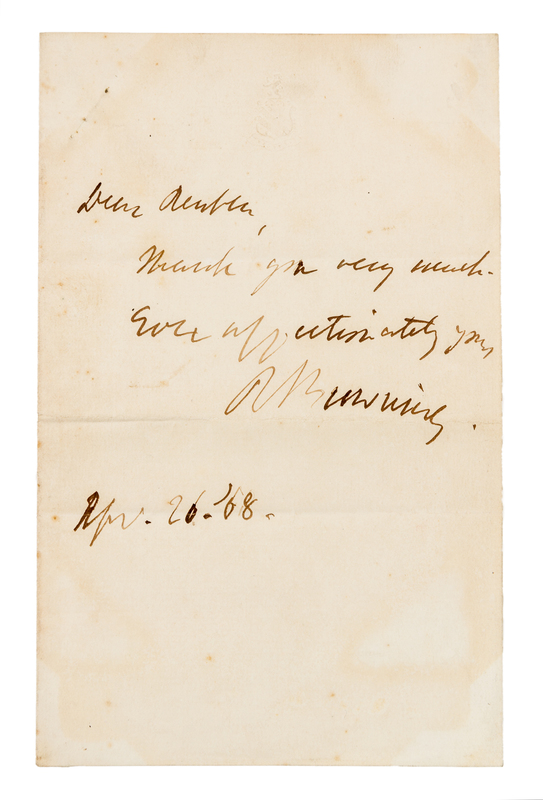 Dear Reuben,
Thank you very much.
Ever affectionately yours,
R Browning.
Apr. 26. '68.